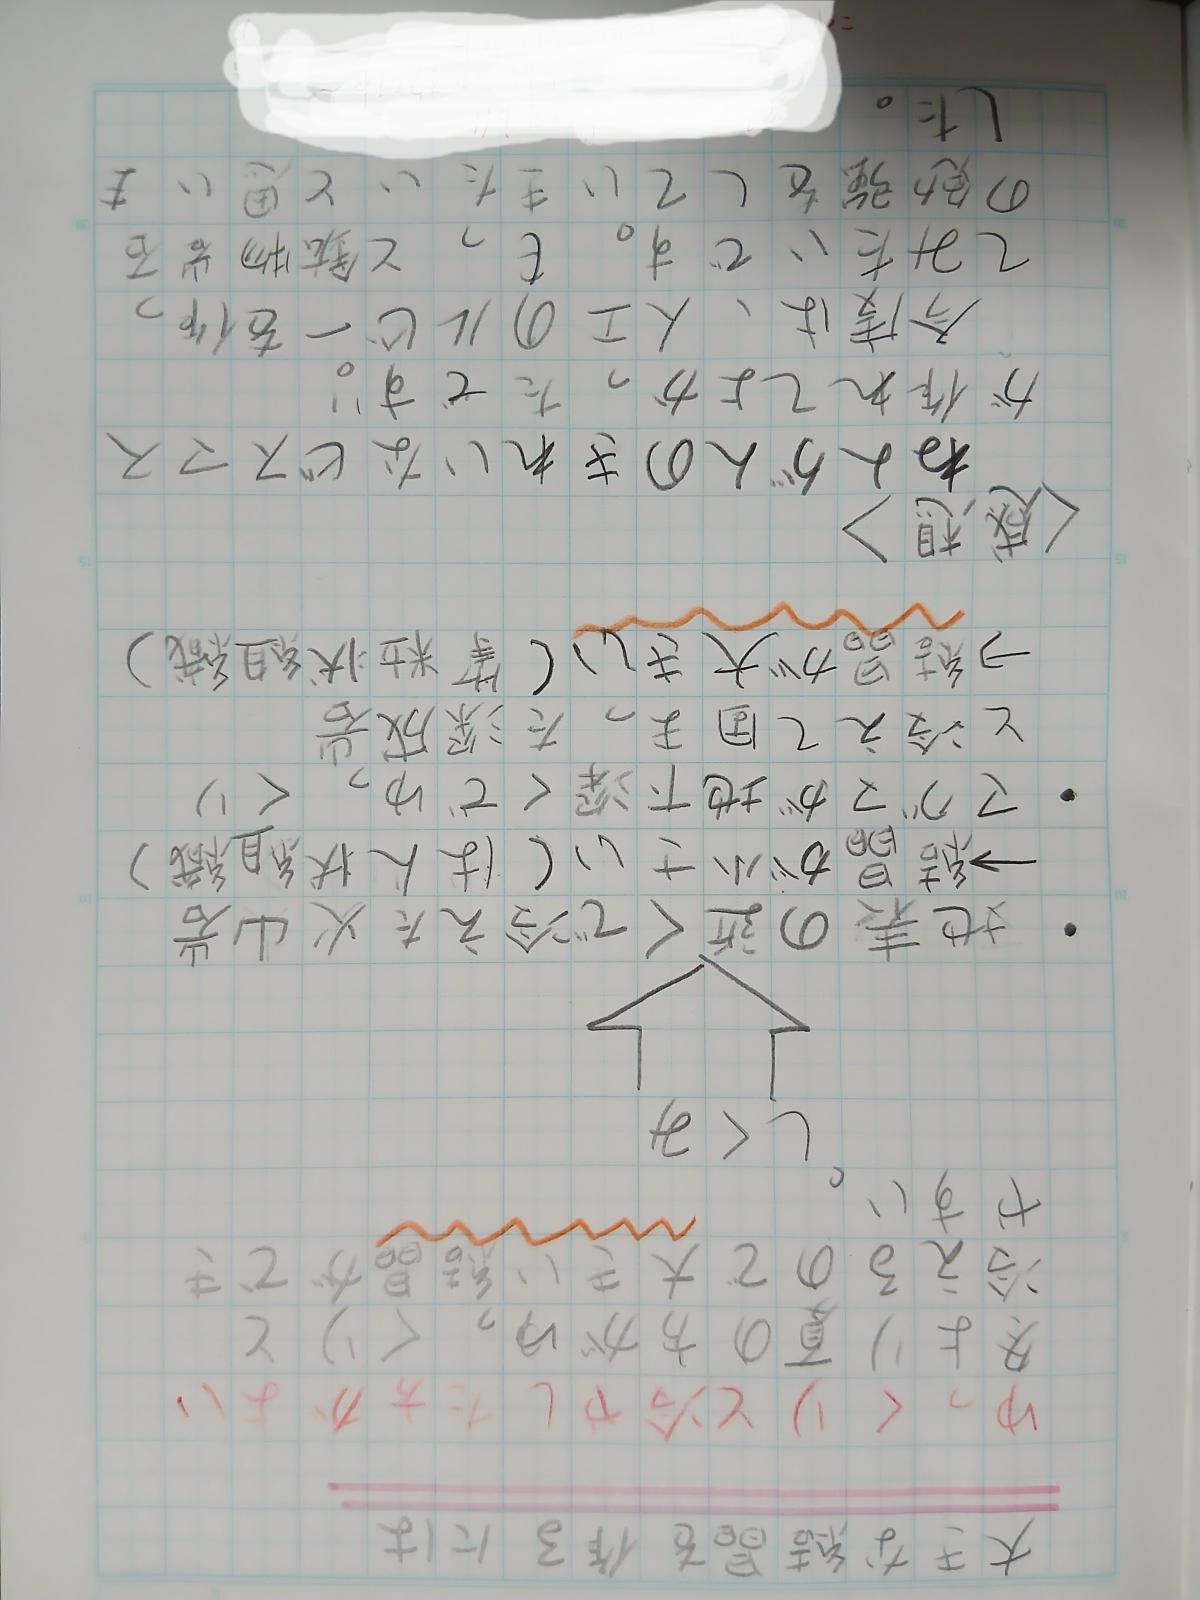 大きな結晶を作るには
ゆっくりと冷やした方がよい
冬より夏の方がゆっくりと
冷えるので大きい結晶ができ
やすい。
しくみ
・地表の近くで冷えた火山岩
→結晶が小さい(はん状組織)
・マグマが地下深くでゆっくり
と冷えて固まった深成岩
→結晶が大きい(等粒状組織)
<感想>
ねんがんのきれいなビスマス
が作れてよかったです!!
今度は、人工のルビーを作っ
てみたいです。もっと鉱物岩石
の勉強をしていきたいと思いま
した。